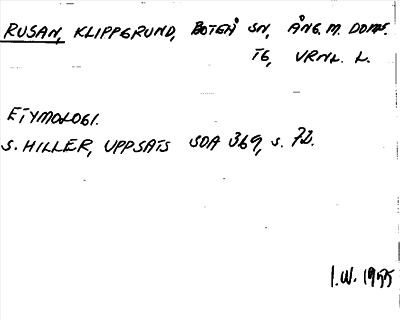 RUSAN, KLIPPGRUND, BOTEÅ SN, ÅNG. M. DOMS.
TG, VRNL. L.
ETYMOLOGI.
S. HILLER, UPPSATS SOA 369, S. 72.
I.W. 1955